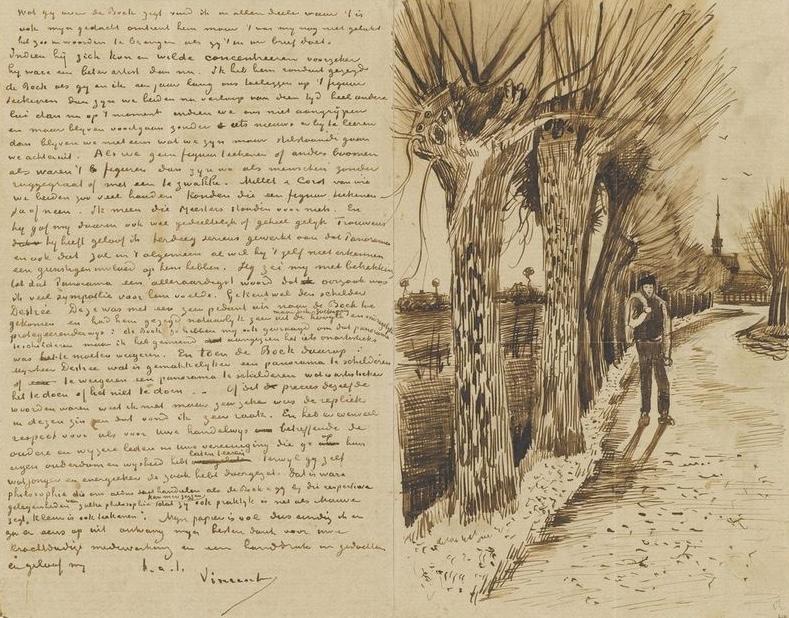 Wat gij over de Bock zegt vind ik in allen deele waar 't is
ook mijn gedacht omtrent hem maar 't was mij nog niet gelukt
het zoo in woorden te brengen als gij 't in uw brief doet.
Indien hij zich kon en wilde concentreeren voorzeker
hij ware een beter artist dan nu. Ik heb hem ronduit gezegd
de Bock als gij en ik een jaar lang ons toeleggen op 't figuur
teekenen dan zijn we beiden na verloop van dien tijd heel andere
lui dan nu op 't moment indien we ons niet aangrijpen
en maar blijven voortgaan zonder iets nieuws er bij te leeren
dan blijven we niet eens wat we zijn maar stilstaande gaan
we achteruit. Als we geen figuur teekenen of anders boomen
als waren 't figuren dan zijn we als menschen zonder
ruggegraat of met een te zwakke. Millet & Corot van wie
we beiden zoo veel houden konden die een figuur teekenen
ja of neen. Ik meen die Meesters stonden voor niets. En
hij gaf mij daarin ook wel gedeeltelijk of geheel gelijk Trouwens
hij heeft geloof ik herdrog serieus gewerkt aan dat Panorama
en ook dat zal in 't algemeen al wil hij 't zelf niet erkennen
een gunstigen invloed op hem hebben. Hij zei mij met betrekking
tot dat Panorama een alleraardigst woord dat oorzaak was
ik veel sympathie voor hem voelde. Gekent wel den schilder
Destrée Deze was met een zeer pedant air naar de Bock toe
gekomen en had hem gezegd natuurlijk zeer uit de hoogte
protegeerenderwijs: de Bock ze hebben mij ook gevraagd om dat panorama
te schilderen maar ik heb gemeend aangezien het iets onartistieks
was het te moeten weigeren. En toen de Bock daarop:
mijnheer Destrée wat is gemakkelijker een panorama te schilderen
of te weigeren een panorama te schilderen wat is artistieker
het te doen of het niet te doen ... Of dit precies dezelfde
woorden waren weet ik niet maar zeer zeker was de repliek
in dezen zin en dat vond ik zeer raak. En heb er evenveel
respect voor als voor uwe handelwijs betreffende de
oudere en wijzere leden in uwe vereeniging die ge hun
eigen ouderdom en wijsheid hebt laten terwijl gij zelf
wat jonger en energieker de zaak hebt doorgezet. Dat is ware
philosophie die ons doet handelen als de Bock & gij bij die respectieve
gelegenheden zulke philosophie ook praktijk is net als Mauve
zegt, kleur is ook teekenen. Mijn papier is vol dus eindig ik en
ga er eens op uit ontvang mijn besten dank voor uwe
krachtdadige medewerking en een handdruk in gedachten
en geloof mij
t.a.t.
Vincent